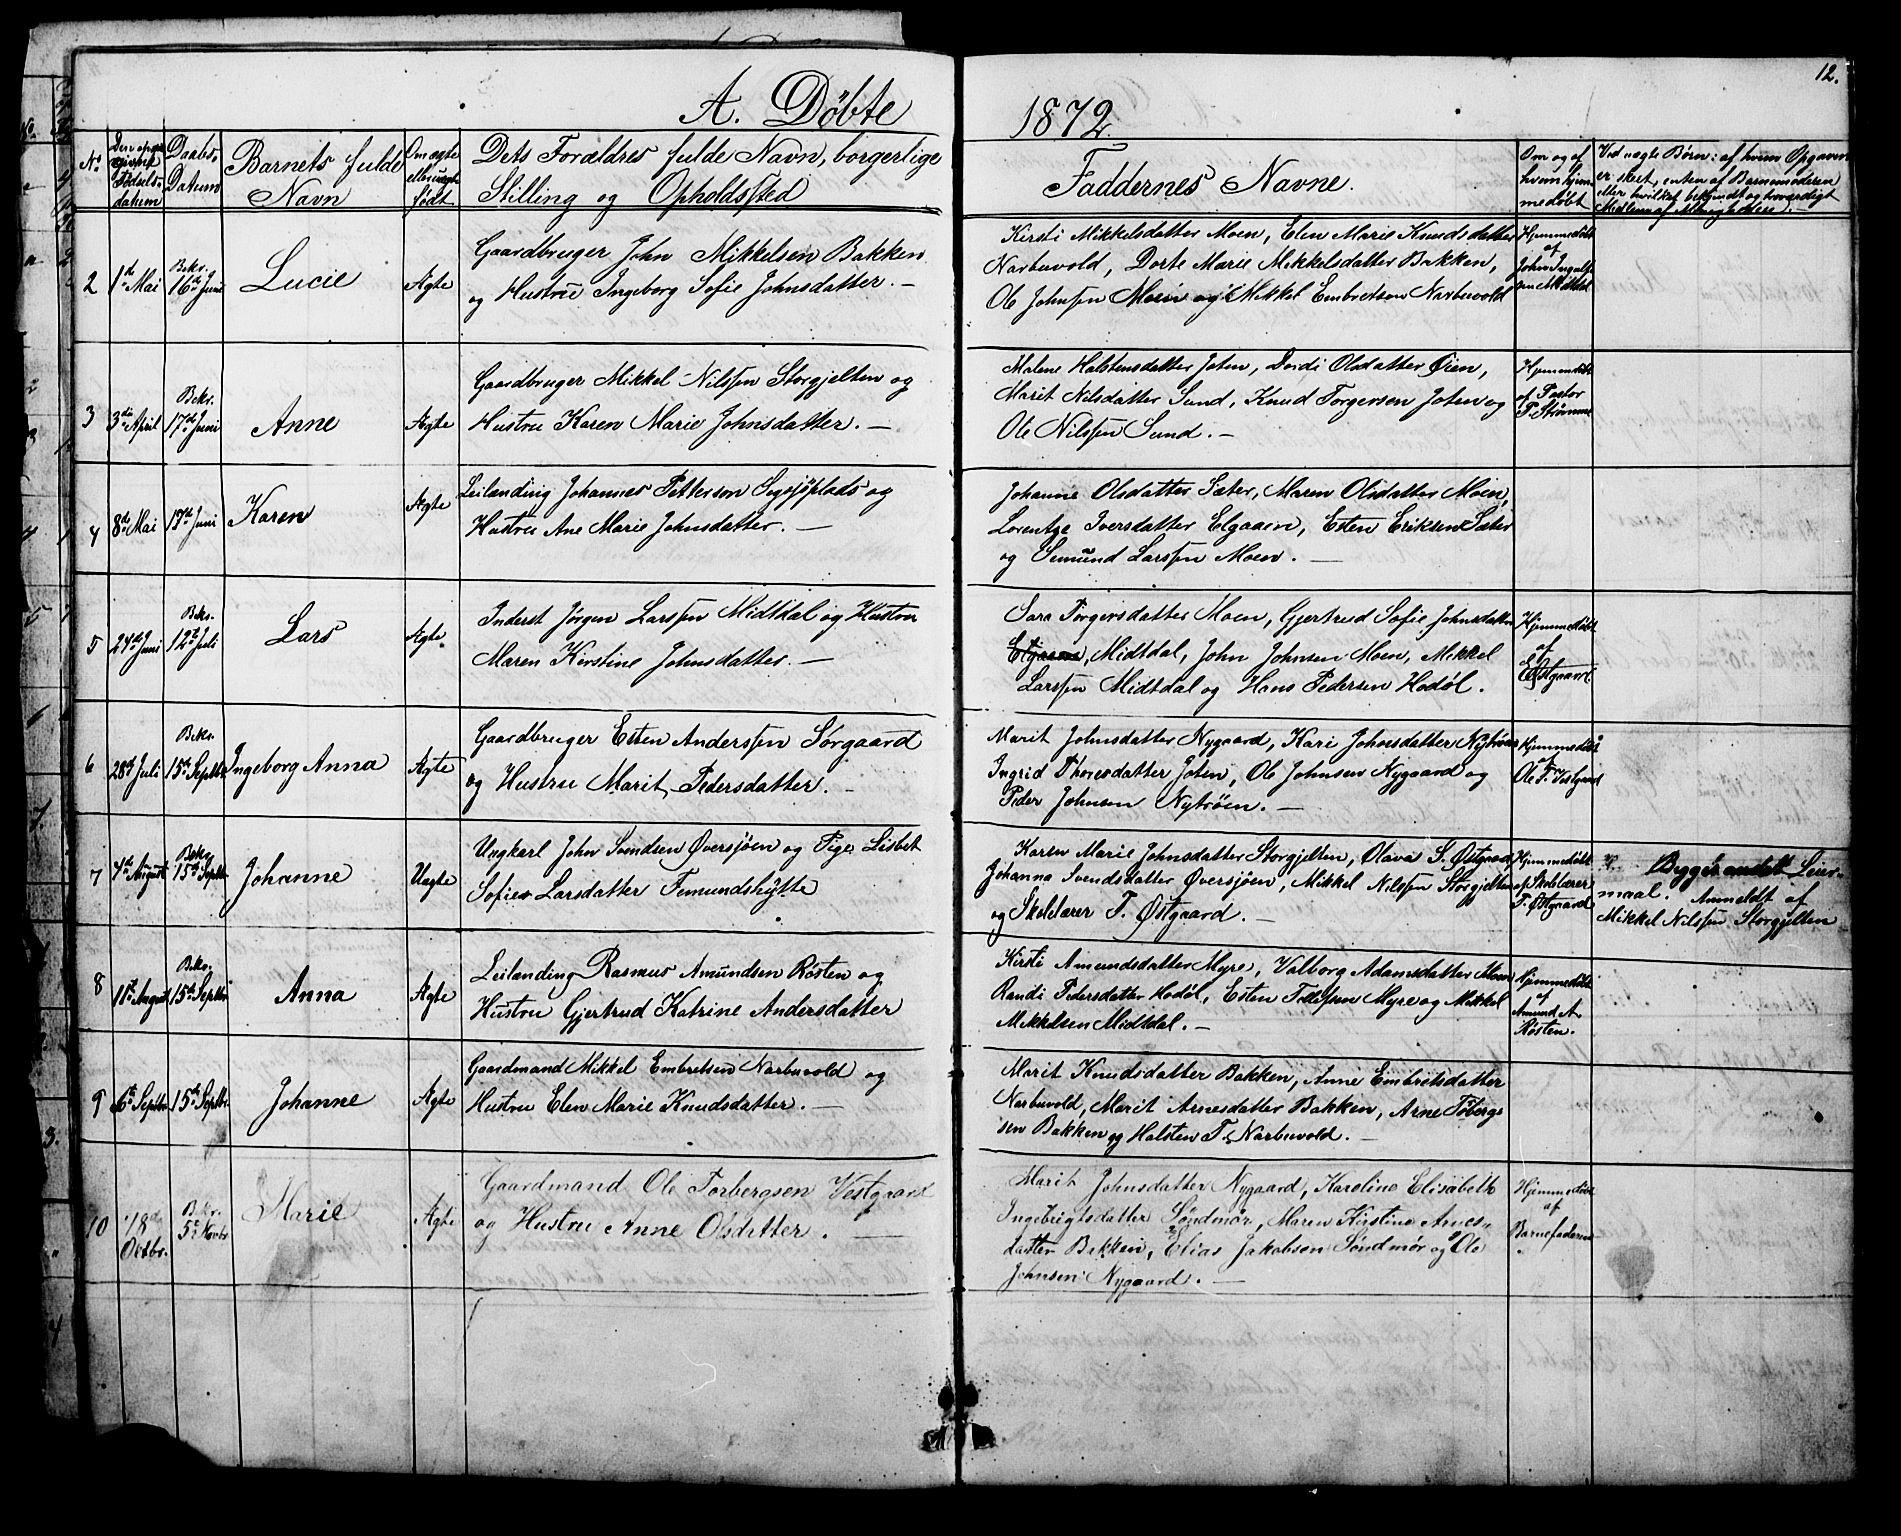 12.
A. Döbte
1872.
No.
Den opgivne Födsels-datum
Daabs-Datum
Barnets fulde Navn
Om ægte ell. uægte født
Dets Forældres fulde Navn, borgerlige Stilling og Opholdssted
Faddernes Navne.
Om og af hvem hjemmedøbt
Ved uægte Börn: af hvem Opgaven er skeet, enten af Barnemoderen eller hvilket bekjendt og troværdigt Medlem af Menigheden. —
2
1ste Mai
Bekr. 16de Juni
Lucie
Ægte
Gaardbruger John Mikkelsen Bakken
og Hustru Ingeborg Sofie Johnsdatter. —
Kirsti Mikkelsdatter Moen, Elen Marie Knudsdatter
Narbuvold, Dorte Marie Mikkelsdatter Bakken,
Ole Johnsen Moen og Mikkel Embretsen Narbuvold
Hjemmedöbt
af
John Ingulf-
3
3die April
Bekr. 17de Juni
Anne
Ægte
Gaardbruger Mikkel Nilssen Storgjelten og
Hustru Karen Marie Johnsdatter. —
Malene Halstensdatter Joten, Dordi Olsdatter Öien,
Marit Nilsdatter Sund, Knud Torgersen Joten og
Ole Nilssen Sund. —
Hjemmedöbt
af Pastor
P. Strömme
4
8de Mai
17de Juni
Karen
Ægte
Leilænding Johannes Petterson Sigsjöplads og
Hustru Ane Marie Johnsdatter. —
Johanne Olsdatter Sæter, Maren Olsdatter Moen,
Lorentze Iversdatter Elgaaen, Esten Eriksen Sæter
og Semund Larssen Moen. —
5
24de Juni
Bekr. 12te Juli
Lars
Ægte
Inderst Jörgen Larssen Midtdal og Hustru
Maren Kirstine Johnsdatter. —
Sara Törgersdatter Moen, Gjertrud Sofie Johnsdatter
Elgaaen, Midtdal, John Johnsen Moen, Mikkel
Larssen Midtdal og Hans Pedersen Hodöl.
Hjemmedöbt
af
E. Östgaard.
6
28de Juli
Bekr. 15de Septbr.
Ingeborg Anna
Ægte
Gaardbruger Esten Anderssen Sörgaard
og Hustru Marit Pedersdatter. —
Marit Johnsdatter Nygaard, Kari Johnsdatter Nytröen
Ingrid Thoresdatter Joten, Ole Johnsen Nygaard og
Peder Johnsen Nytröen. —
Hjemmedöbt
af
Ole T. Vestgaard
7
4de August
Bekr. 15de Septbr.
Johanne
Uægte
Ungkarl John Svendsen Översjöen og Pige Lisbet
Sofie Larsdatter Femundshytte
Karen Marie Johnsdatter Storgjelten, Olava S. Östgaard
Johanna Svendsdatter Översjöen, Mikkel Nilssen Storgjelten
og Skolelærer T. Östgaard. —
Hjemmedöbt
af Skolelærer
T. Östgaard
Begges andet Leier-
maal. Anmeldt af
Mikkel Nilssen Storgjelten
8
11te August
Bekr. 15de Septbr.
Anna
Ægte
Leilænding Rasmus Amundsen Rösten og
Hustru Gjertrud Katrine Andersdatter
Kirsti Amundsdatter Myre, Valborg Adamsdatter Moen
Randi Pedersdatter Hodöl, Esten Tollefsen Myre og Mikkel
Mikkelsen Midtdal. —
Hjemmedöbt
af
Amund A.
Rösten.
9
6te Septbr.
15de Septbr.
Johanne
Ægte
Gaardmand Mikkel Embretsen Narbuvold og
Hustru Elen Marie Knudsdatter. —
Marit Knudsdatter Bakken, Anne Embretsdatter
Narbuvold, Marit Arnesdatter Bakken, Arne Töbergs
sen Bakken og Halsten T. Narbuvold. —
10
18de Octbr.
Bekr. 5te Novbr.
Marie
Ægte
Gaardmand Ole Torbergsen Vestgaard
og Hustru Anne Olsdatter. —
Marit Johnsdatter Nygaard, Karoline Elisabeth
Ingebrigtsdatter Söndmör, Maren Kirstine Arnes-
datter Bakken, Elias Jakobsen Söndmör og Ole
Johnsen Nygaard. —
Hjemmedöbt
af
Barnefaderen